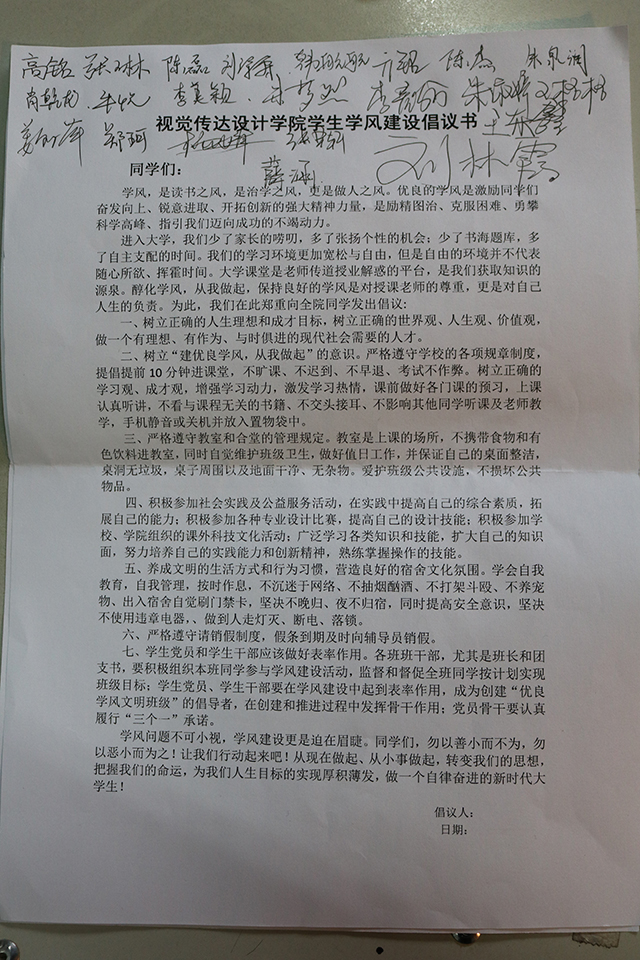 高铭 陈磊 陈杰
郑珂
视觉传达设计学院学生学风建设倡议书
刘林霞
同学们：
学风，是读书之风，是治学之风，更是做人之风。优良的学风是激励同学们
奋发向上、锐意进取、开拓创新的强大精神力量，是励精图治、克服困难、勇攀
科学高峰、指引我们迈向成功的不竭动力。
进入大学，我们少了家长的唠叨，多了张扬个性的机会；少了书海题库，多
了自主支配的时间。我们的学习环境更加宽松与自由，但是自由的环境并不代表
随心所欲、挥霍时间。大学课堂是老师传道授业解惑的平台，是我们获取知识的
源泉。醇化学风，从我做起，保持良好的学风是对授课老师的尊重，更是对自己
人生的负责。为此，我们在此郑重向全院同学发出倡议：
一、树立正确的人生理想和成才目标，树立正确的世界观、人生观、价值观，
做一个有理想、有作为、与时俱进的现代社会需要的人才。
二、树立“建优良学风，从我做起”的意识。严格遵守学校的各项规章制度，
提倡提前 10 分钟进课堂，不旷课、不迟到、不早退、考试不作弊。树立正确的
学习观、成才观，增强学习动力，激发学习热情，课前做好各门课的预习，上课
认真听讲，不看与课程无关的书籍、不交头接耳、不影响其他同学听课及老师教
学，手机静音或关机并放入置物袋中。
三、严格遵守教室和合堂的管理规定。教室是上课的场所，不携带食物和有
色饮料进教室，同时自觉维护班级卫生，做好值日工作，并保证自己的桌面整洁，
桌洞无垃圾，桌子周围以及地面干净、无杂物。爱护班级公共设施，不损坏公共
物品。
四、积极参加社会实践及公益服务活动，在实践中提高自己的综合素质，拓
展自己的能力；积极参加各种专业设计比赛，提高自己的设计技能；积极参加学
校、学院组织的课外科技文化活动；广泛学习各类知识和技能，扩大自己的知识
面，努力培养自己的实践能力和创新精神，熟练掌握操作的技能。
五、养成文明的生活方式和行为习惯，营造良好的宿舍文化氛围。学会自我
教育，自我管理，按时作息，不沉迷于网络、不抽烟酗酒、不打架斗殴、不养宠
物、出入宿舍自觉刷门禁卡，坚决不晚归、夜不归宿，同时提高安全意识，坚决
不使用违章电器，、做到人走灯灭、断电、落锁。
六、严格遵守请销假制度，假条到期及时向辅导员销假。
七、学生党员和学生干部应该做好表率作用。各班班干部，尤其是班长和团
支书，要积极组织本班同学参与学风建设活动，监督和督促全班同学按计划实现
班级目标；学生党员、学生干部要在学风建设中起到表率作用，成为创建“优良
学风文明班级”的倡导者，在创建和推进过程中发挥骨干作用；党员骨干要认真
履行“三个一”承诺。
学风问题不可小视，学风建设更是迫在眉睫。同学们，勿以善小而不为，勿
以恶小而为之！让我们行动起来吧！从现在做起、从小事做起，转变我们的思想，
把握我们的命运，为我们人生目标的实现厚积薄发，做一个自律奋进的新时代大
学生！
倡议人：
日期：